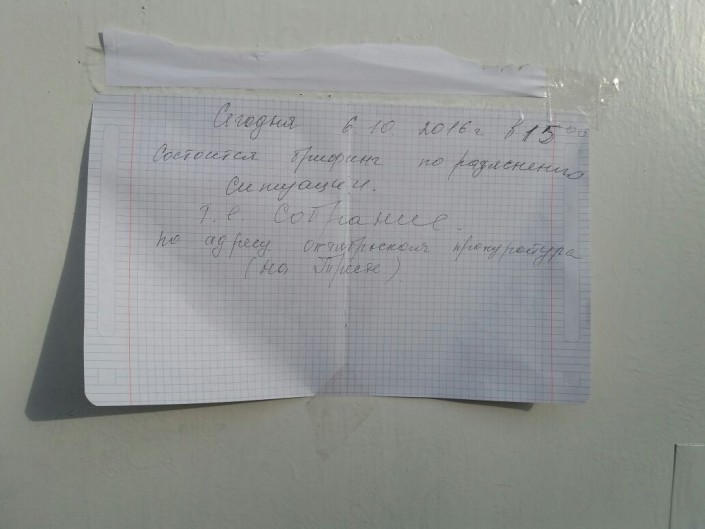 Сегодня 6 10. 2016 г в 15 00
состоится брифинг по разяснению
ситуации.
т.е собрание.
по адресу октябрьская прокуратура
(на Тресте)